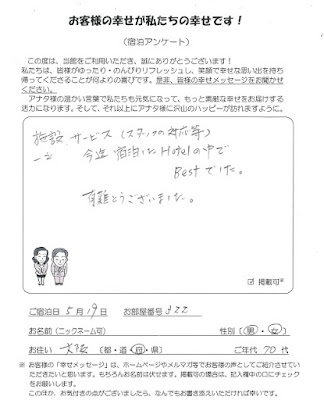 お客様の幸せが私たちの幸せです！
（宿泊アンケート）
この度は、当館をご利用いただき、誠にありがとうございます！
私たちは、皆様がゆったり・のんびりリフレッシュし、笑顔で幸せな思い出を持ち
帰ってくださることが何よりの喜びです。是非、皆様の幸せメッセージをお聞かせ
ください。
アナタ様の温かい言葉で私たちも元気になって、もっと素敵な幸せをお届けする
活力になります。そして、それ以上にアナタ様に沢山のハッピーが訪れますように。
施設 サービス（スタッフの対応等）
今迄 泊泊した Hotelの中で
Bestでした。
有難とうございました。
☑ 掲載可※
ご宿泊日 5月19日 お部屋番号 322
お名前（ニックネーム可） 性別（男・女）
お住い 大阪（都・道・府・県） ご年代 70代
※ お客様の「幸せメッセージ」は、ホームページやメルマガ等でお客様の声としてご紹介させてい
ただきたいと思います。もちろんお名前は伏せます。掲載可の場合は、記入欄中の口にチェック
をお願いします。
この欄中のほか、お気付きの点がございましたら、なんでもお書き添えいただければ幸いです。